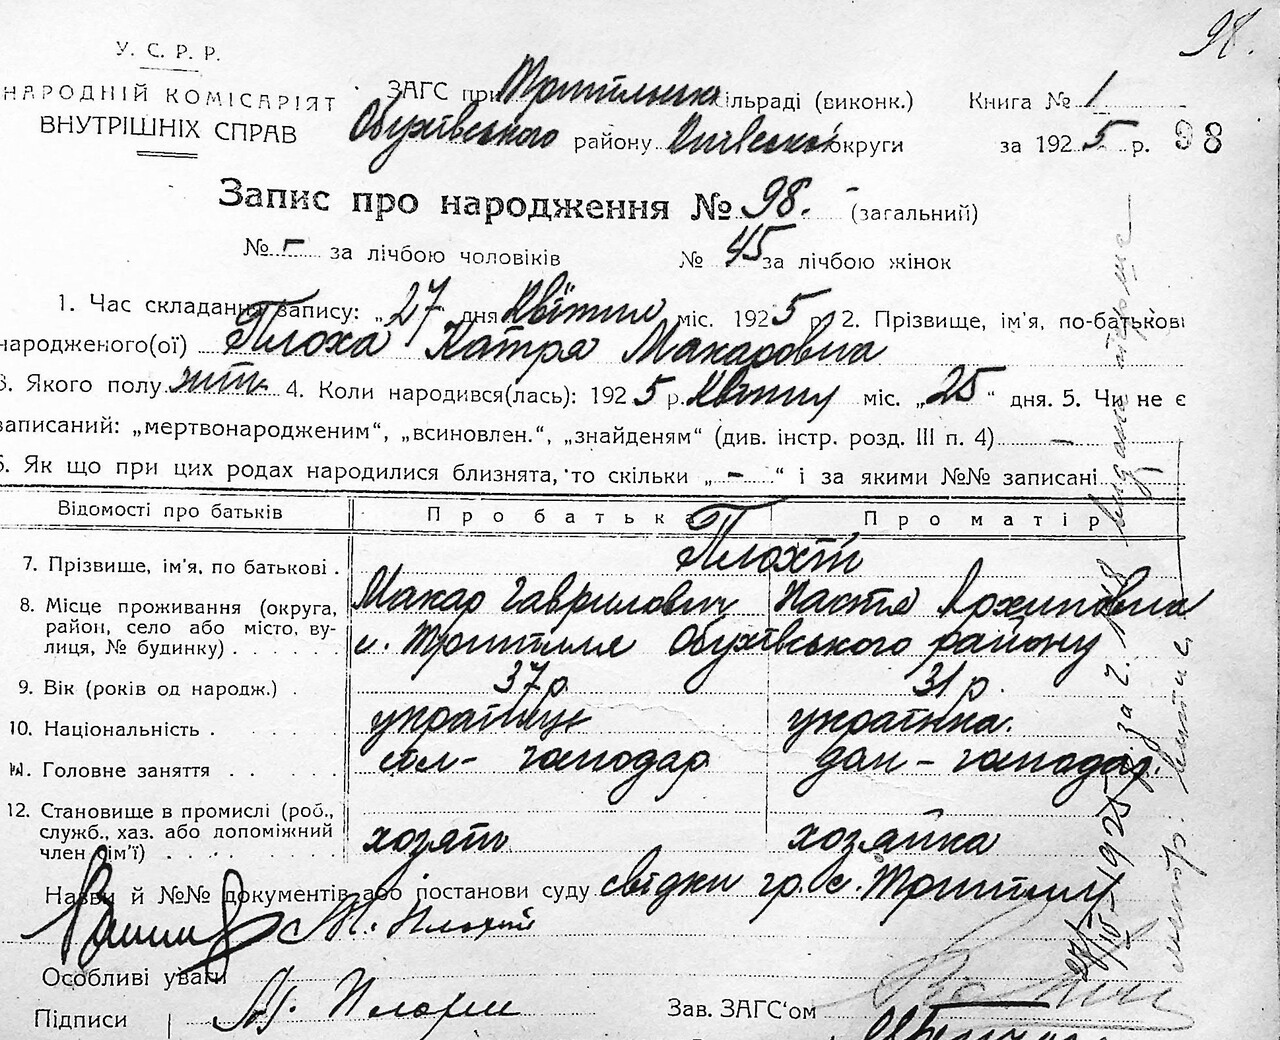 98.
У. С. Р. Р.
НАРОДНІЙ КОМІСАРІЯТ
ВНУТРІШНІХ СПРАВ
ЗАГС при Трипільській сільраді (виконк.) Книга № 1
Обухівського району Київської округи за 1925 р. 98
Запис про народження № 98. (загальний)
№ - за лічбою чоловіків № 45 за лічбою жінок
1. Час складання запису: „27 дня Квітня міс. 1925 р. 2. Прізвище, ім'я, по-батькові
народженого(ої) Плоха Катря Макаровна
3. Якого полу жін. 4. Коли народився(лась): 1925 р. Квітня міс. „25“ дня. 5. Чи не є
записаний: „мертвонародженим“, „всиновлен.“, „знайденям“ (див. інстр. розд. III п. 4) —
6. Як що при цих родах народилися близнята, то скільки „ - “ і за якими №№ записані
Відомості про батьків Про батька Про матір
7. Прізвище, ім'я, по батькові . Плохій
Макар Гаврилович Настя Архиповна
8. Місце проживання (округа,
район, село або місто, ву-
лиця, № будинку) . . . . . . с. Трипілля Обухівського району
9. Вік (років од народж.) . 37 р. 31 р.
10. Національність . . . . . українец українка.
11. Головне заняття . . . . . сіл- господар дом - господар.
12. Становище в промислі (роб.,
служб., хаз. або допоміжний
член сім'ї) . . . . . . . . хозяїн хозяйка
Назви й №№ документів або постанови суду свідки гр. с. Трипілля
М. Плохий
Особливі уваги
Підписи М. Плохий Зав. ЗАГС'ом